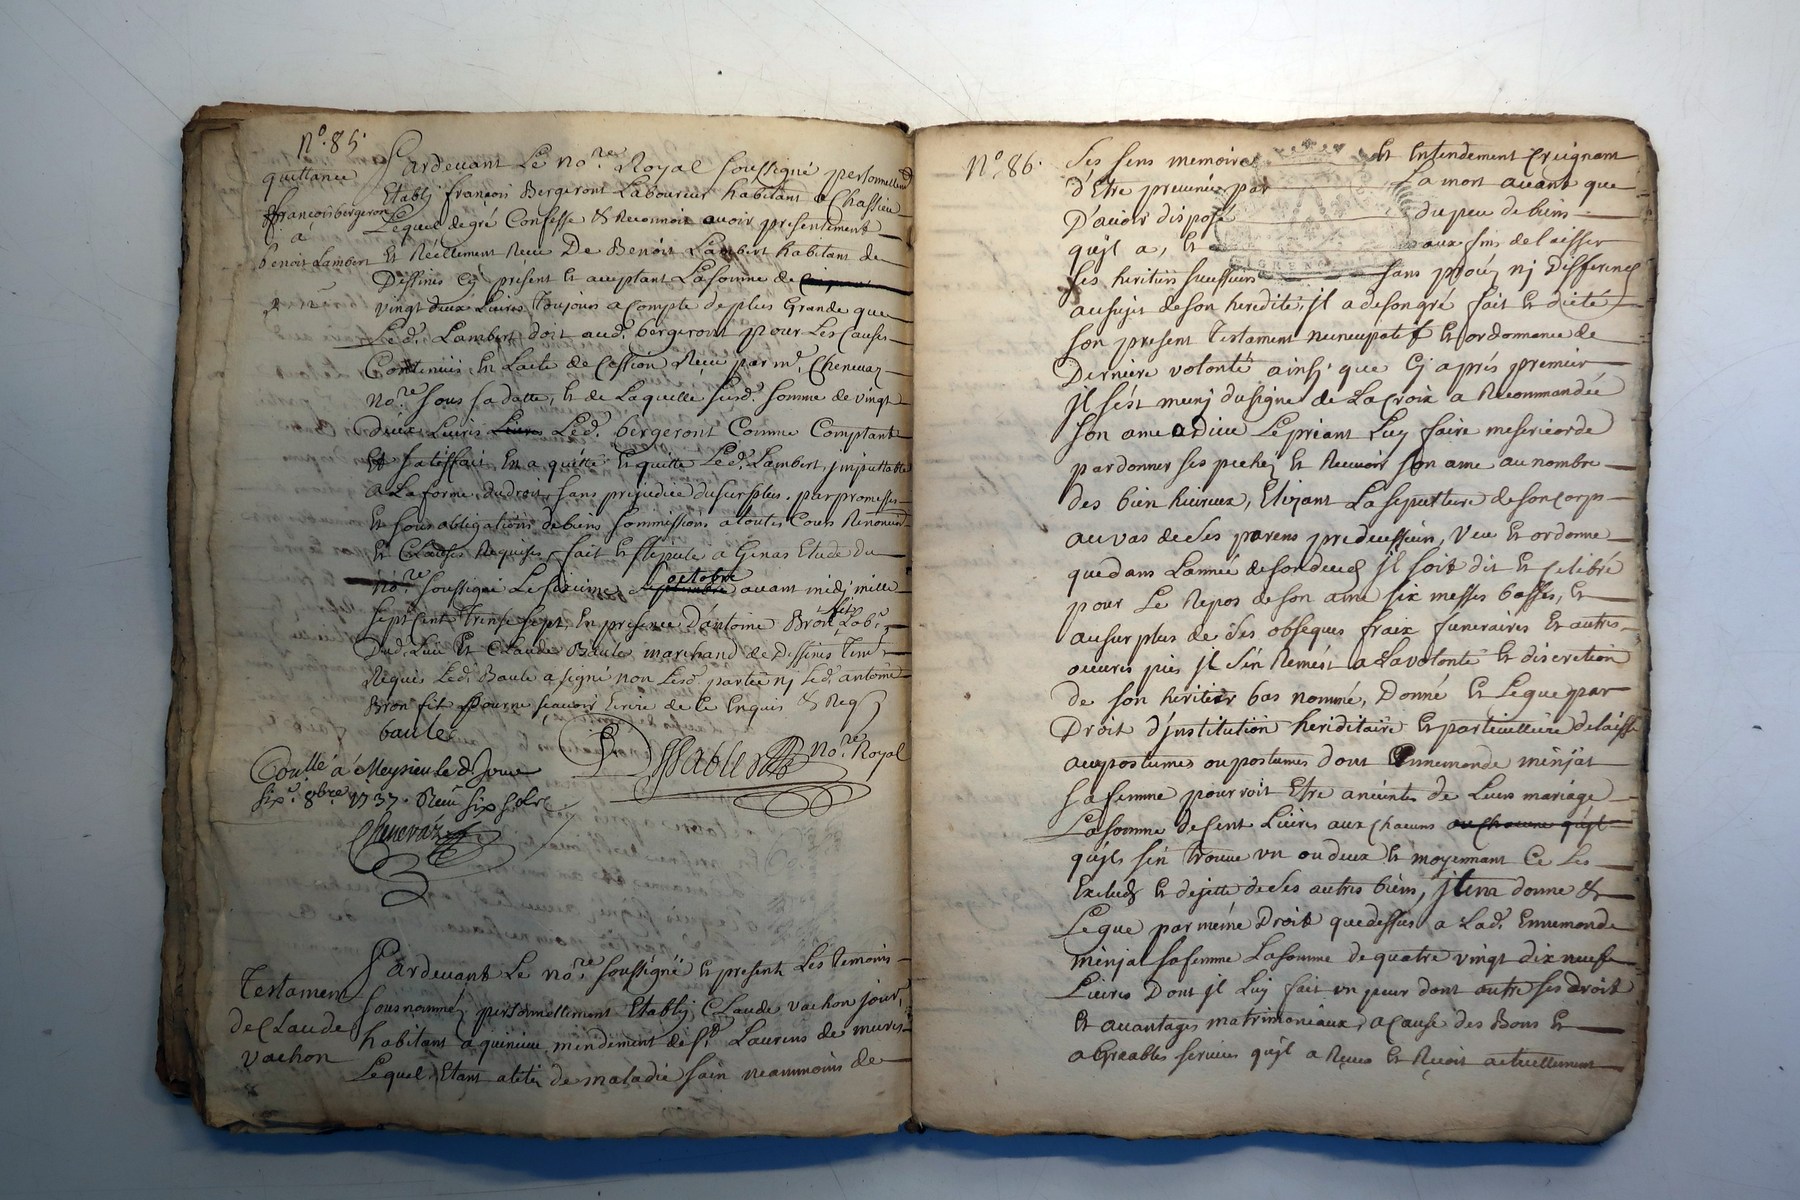 N.º 85.
quittance
françois bergeron
a
benoit Lambert
Pardevant Le no.re Royal soussigné personnellem.t
Etablj françois Bergeront Laboureur habitant a Chassieu
Lequel de gré Confesse & Reconnoit avoir presentement
et Reellement Receu De Benoit Lambert habitant de
Dessines Cy present et acceptant La somme de
vingt deux Livres Toujours a compte de plus Grande que
Led. Lambert doit aud. bergeront pour Les Causes
Contenües En Lacte de Cession Receu par m.e Chenevaz
no.re sous sa datte, et de Laquelle susd. somme de vingt
Deux Livres Livres Led. bergeront Comme Comptant
Et satisfait En a quitté et quitte Led. Lambert, jmputtable
a La forme du droit sans prejudice du surplus. par promesses
Et sous obligations de biens sommissions a toutes Cours Renonciad.
et Clauses Requises fait et stipulé a Genas Etude du
no.re soussigné Le sixieme septembre octobre avant midj mille
sept Cent Trente sept, En presence d'antoine Bron fils Lab.r
Dud. Lieu Et Claude Baule marchand de Dessines Tem.
Requis Led. Baule a signé non Lesd. parties nj Led. antoine
Bron fils pour ne sçavoir Ecrire de ce Enquis & Req.
baule
no.re Royal
Conllé a Meysieu le d. Jour
six.e 8bre 1737. Receu six sols
Chenevaz
Testament
De Claude
vachon
Pardevant Le no.re soussigné et present Les Temoins
sous nommés personnellement Etablj Claude vachon jour.
habitant a quincieu mendement de s.t Laurens de mures
Lequel Etant de maladie sain neammoins de
N.º 86.
ses sens memoire et Entendement Creignant
d'Etre prevenu par La mort avant que
D'avoir disposé du peu de biens
qu'jl a, Et aux fins de laisser
ses heritiers successeurs sans procés nj Differends
au sujet de son heredité, jl a de son gré fait et dicté
son present Testament nuncupatif et ordonnance de
Derniere volonté ainsj que Cj aprés premier
jl s'est munj du signe de La Croix a Recommandée
son ame a Dieu Le priant Luy faire misericorde
pardonner ses pechez et Recevoir son ame au nombre
des bien hureux, Elizant La sepulture de son Corps
au vas de ses parens predecesseurs, Veu et ordonne
que dans L'année de son deces jl soit dit et celebré
pour Le Repos de son ame six messes basses, et
au surplus de ses obseques fraix funeraires et autres
oeuvres pies jl s'en Remest a La volonté et discretion
de son heritier bas nommé, Donné et Legue par
Droit d'jnstitution hereditaire et particulliere delaisse
aux postumes ou postumes dont Ennemonde minjat
sa femme pourroit Etre anceinte de Leur mariage
La somme de Cent Livres aux chacuns ou Chacune qu'jl
qu'jls s'en Trouve un ou deux et moyennant Ce Les
Exclud et dejette de ses autres biens, jtem donne &
Legue par méme Droit que dessus a Lad. Ennemonde
minjat sa femme La somme de quatre vingt dix neuf
Livres Dont jl Luy fait un pur don outre ses droits
et avantages matrimoniaux a Cause des Bons et
aGreables services qu'jl a Receu et Reçoit actuellement